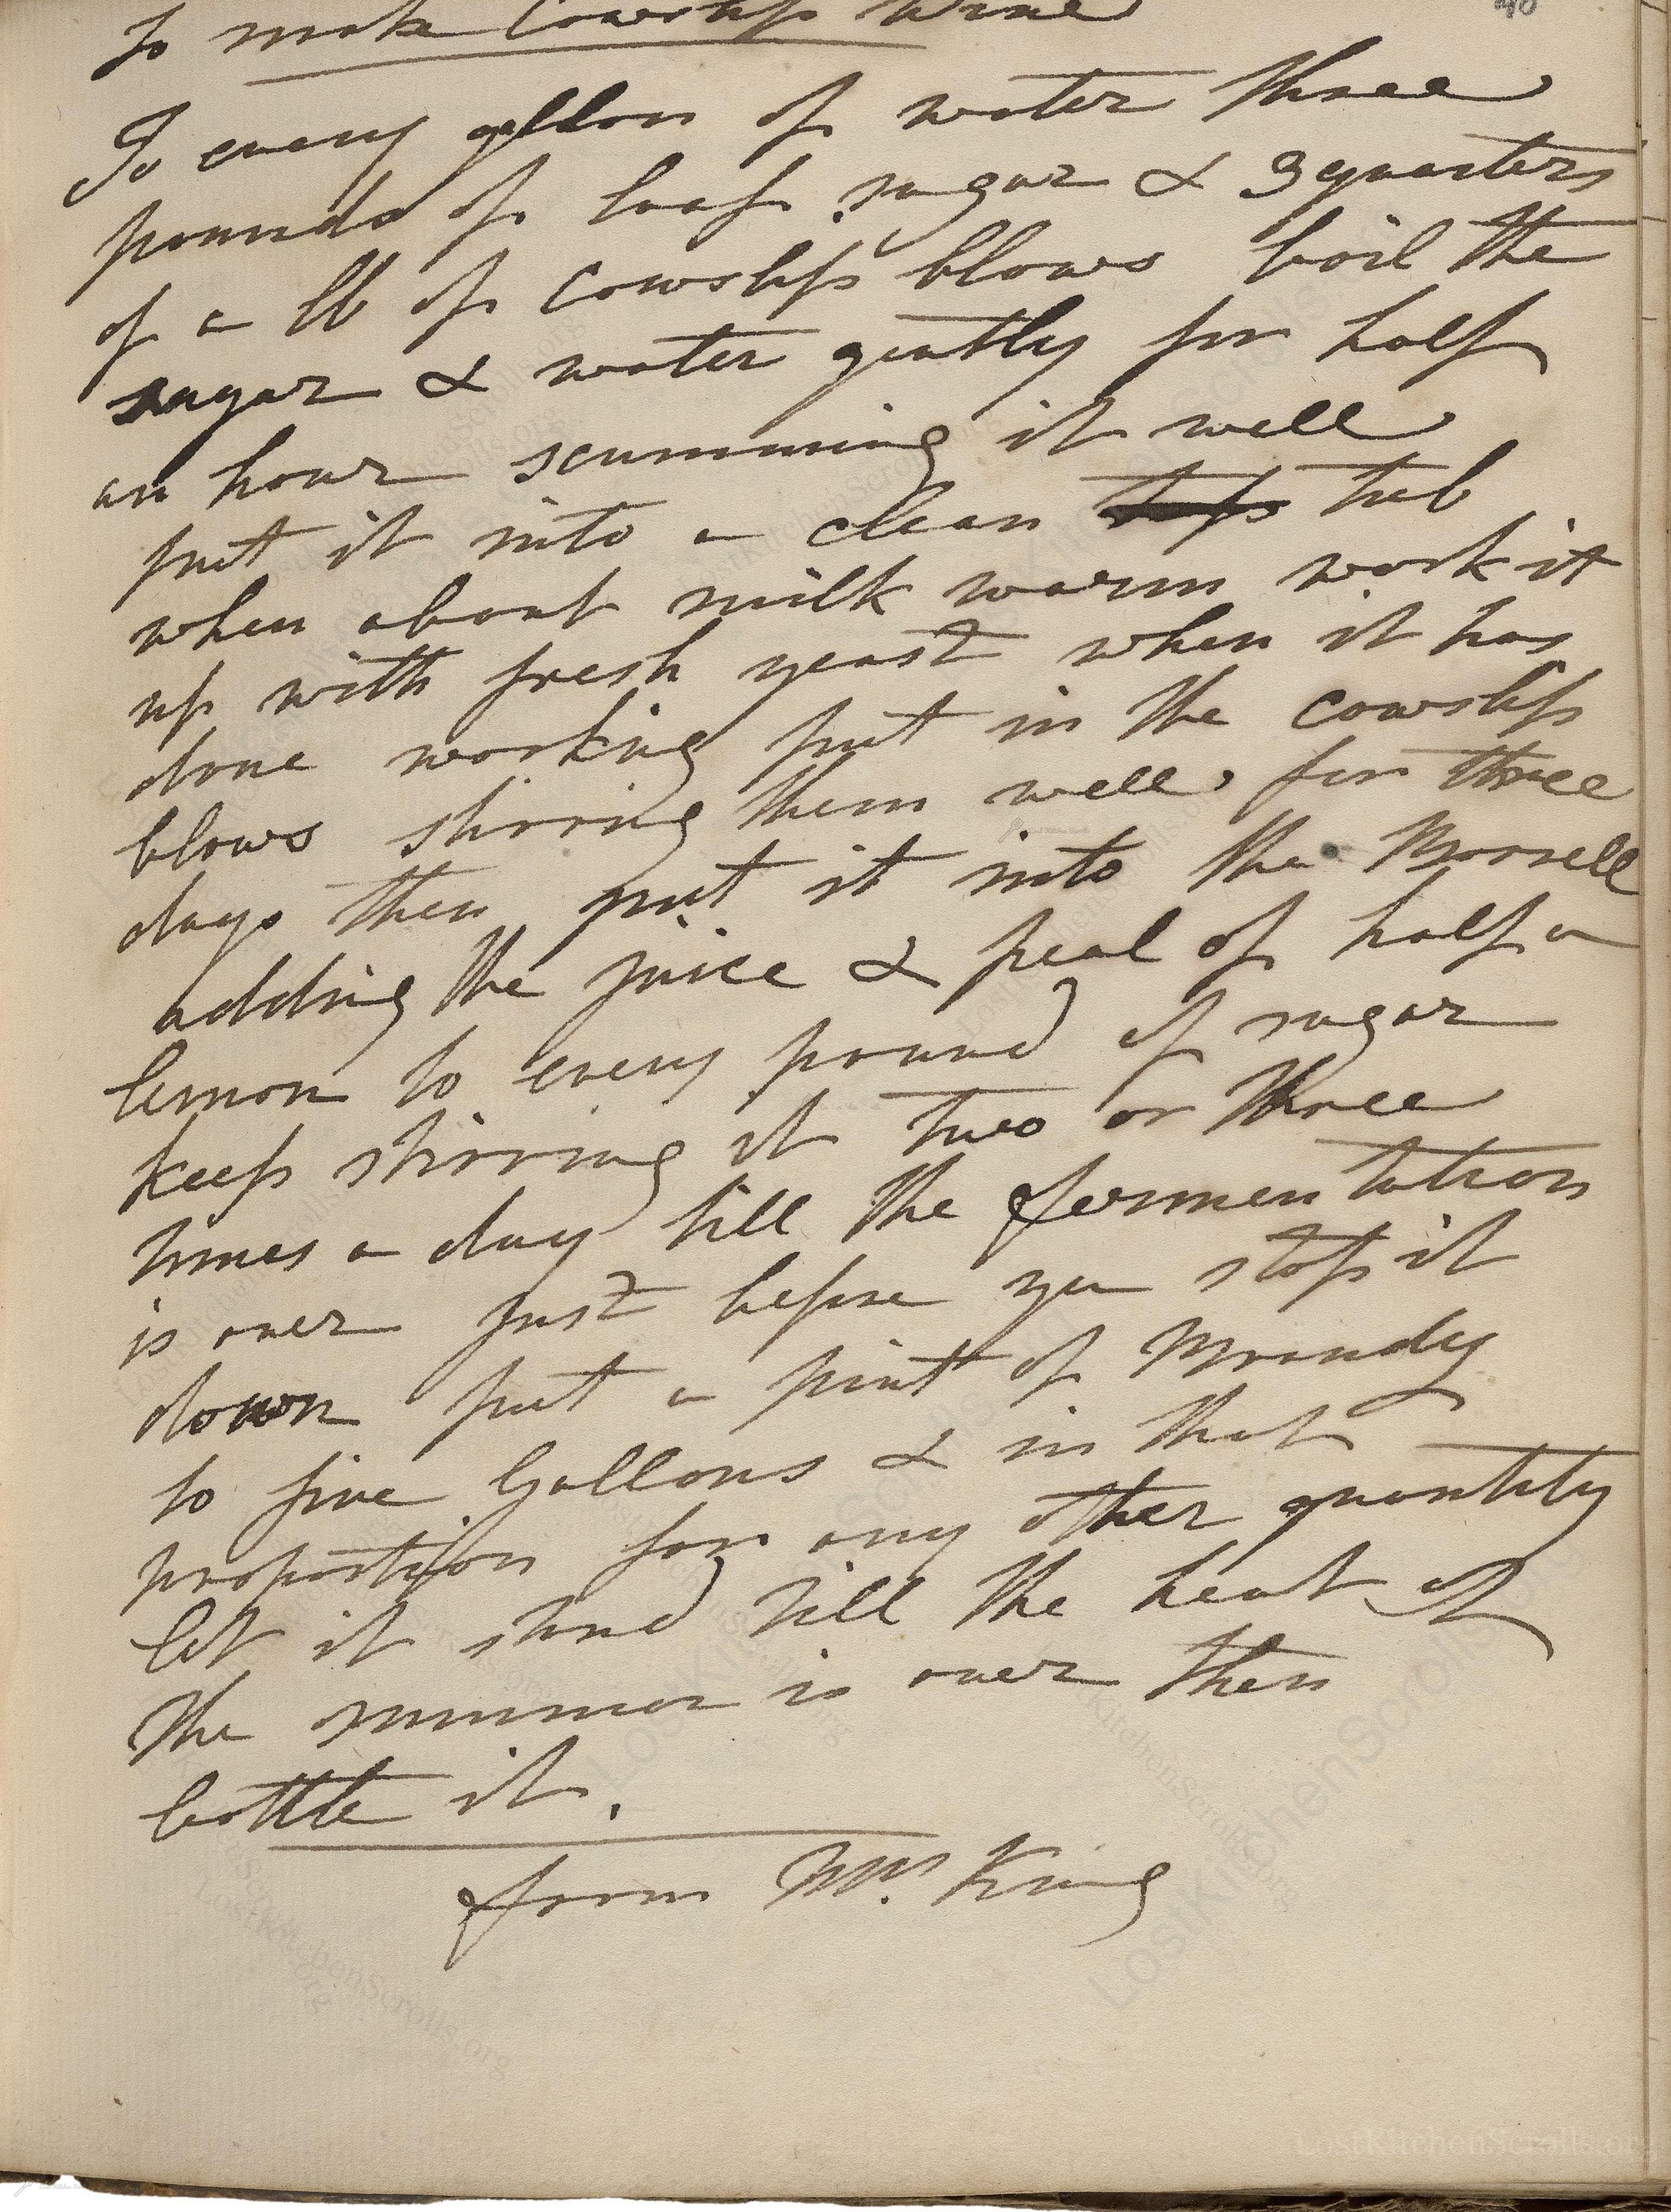 To make Cowslip Wine
To every gallon of water three
pounds of loaf sugar & 3 quarters
of a lb of Cowslips blows boil the
sugar & water gently for half
an hour scumming it well
put it into a clean tub
when about milk warm work it
up with fresh yeast when it has
done working put in the cowslips
blows stirring them well for three
days then put it into the Barrell
adding the juice & peal of half a
lemon to every pound of sugar
keep stirring it two or three
times a day till the fermentation
is over just before you stop it
down put a pint of Brandy
to five Gallons & in that
proportion for any other quantity
let it stand till the heat of
the summer is over then
bottle it.
from Mrs. King
LostKitchenScrolls.org